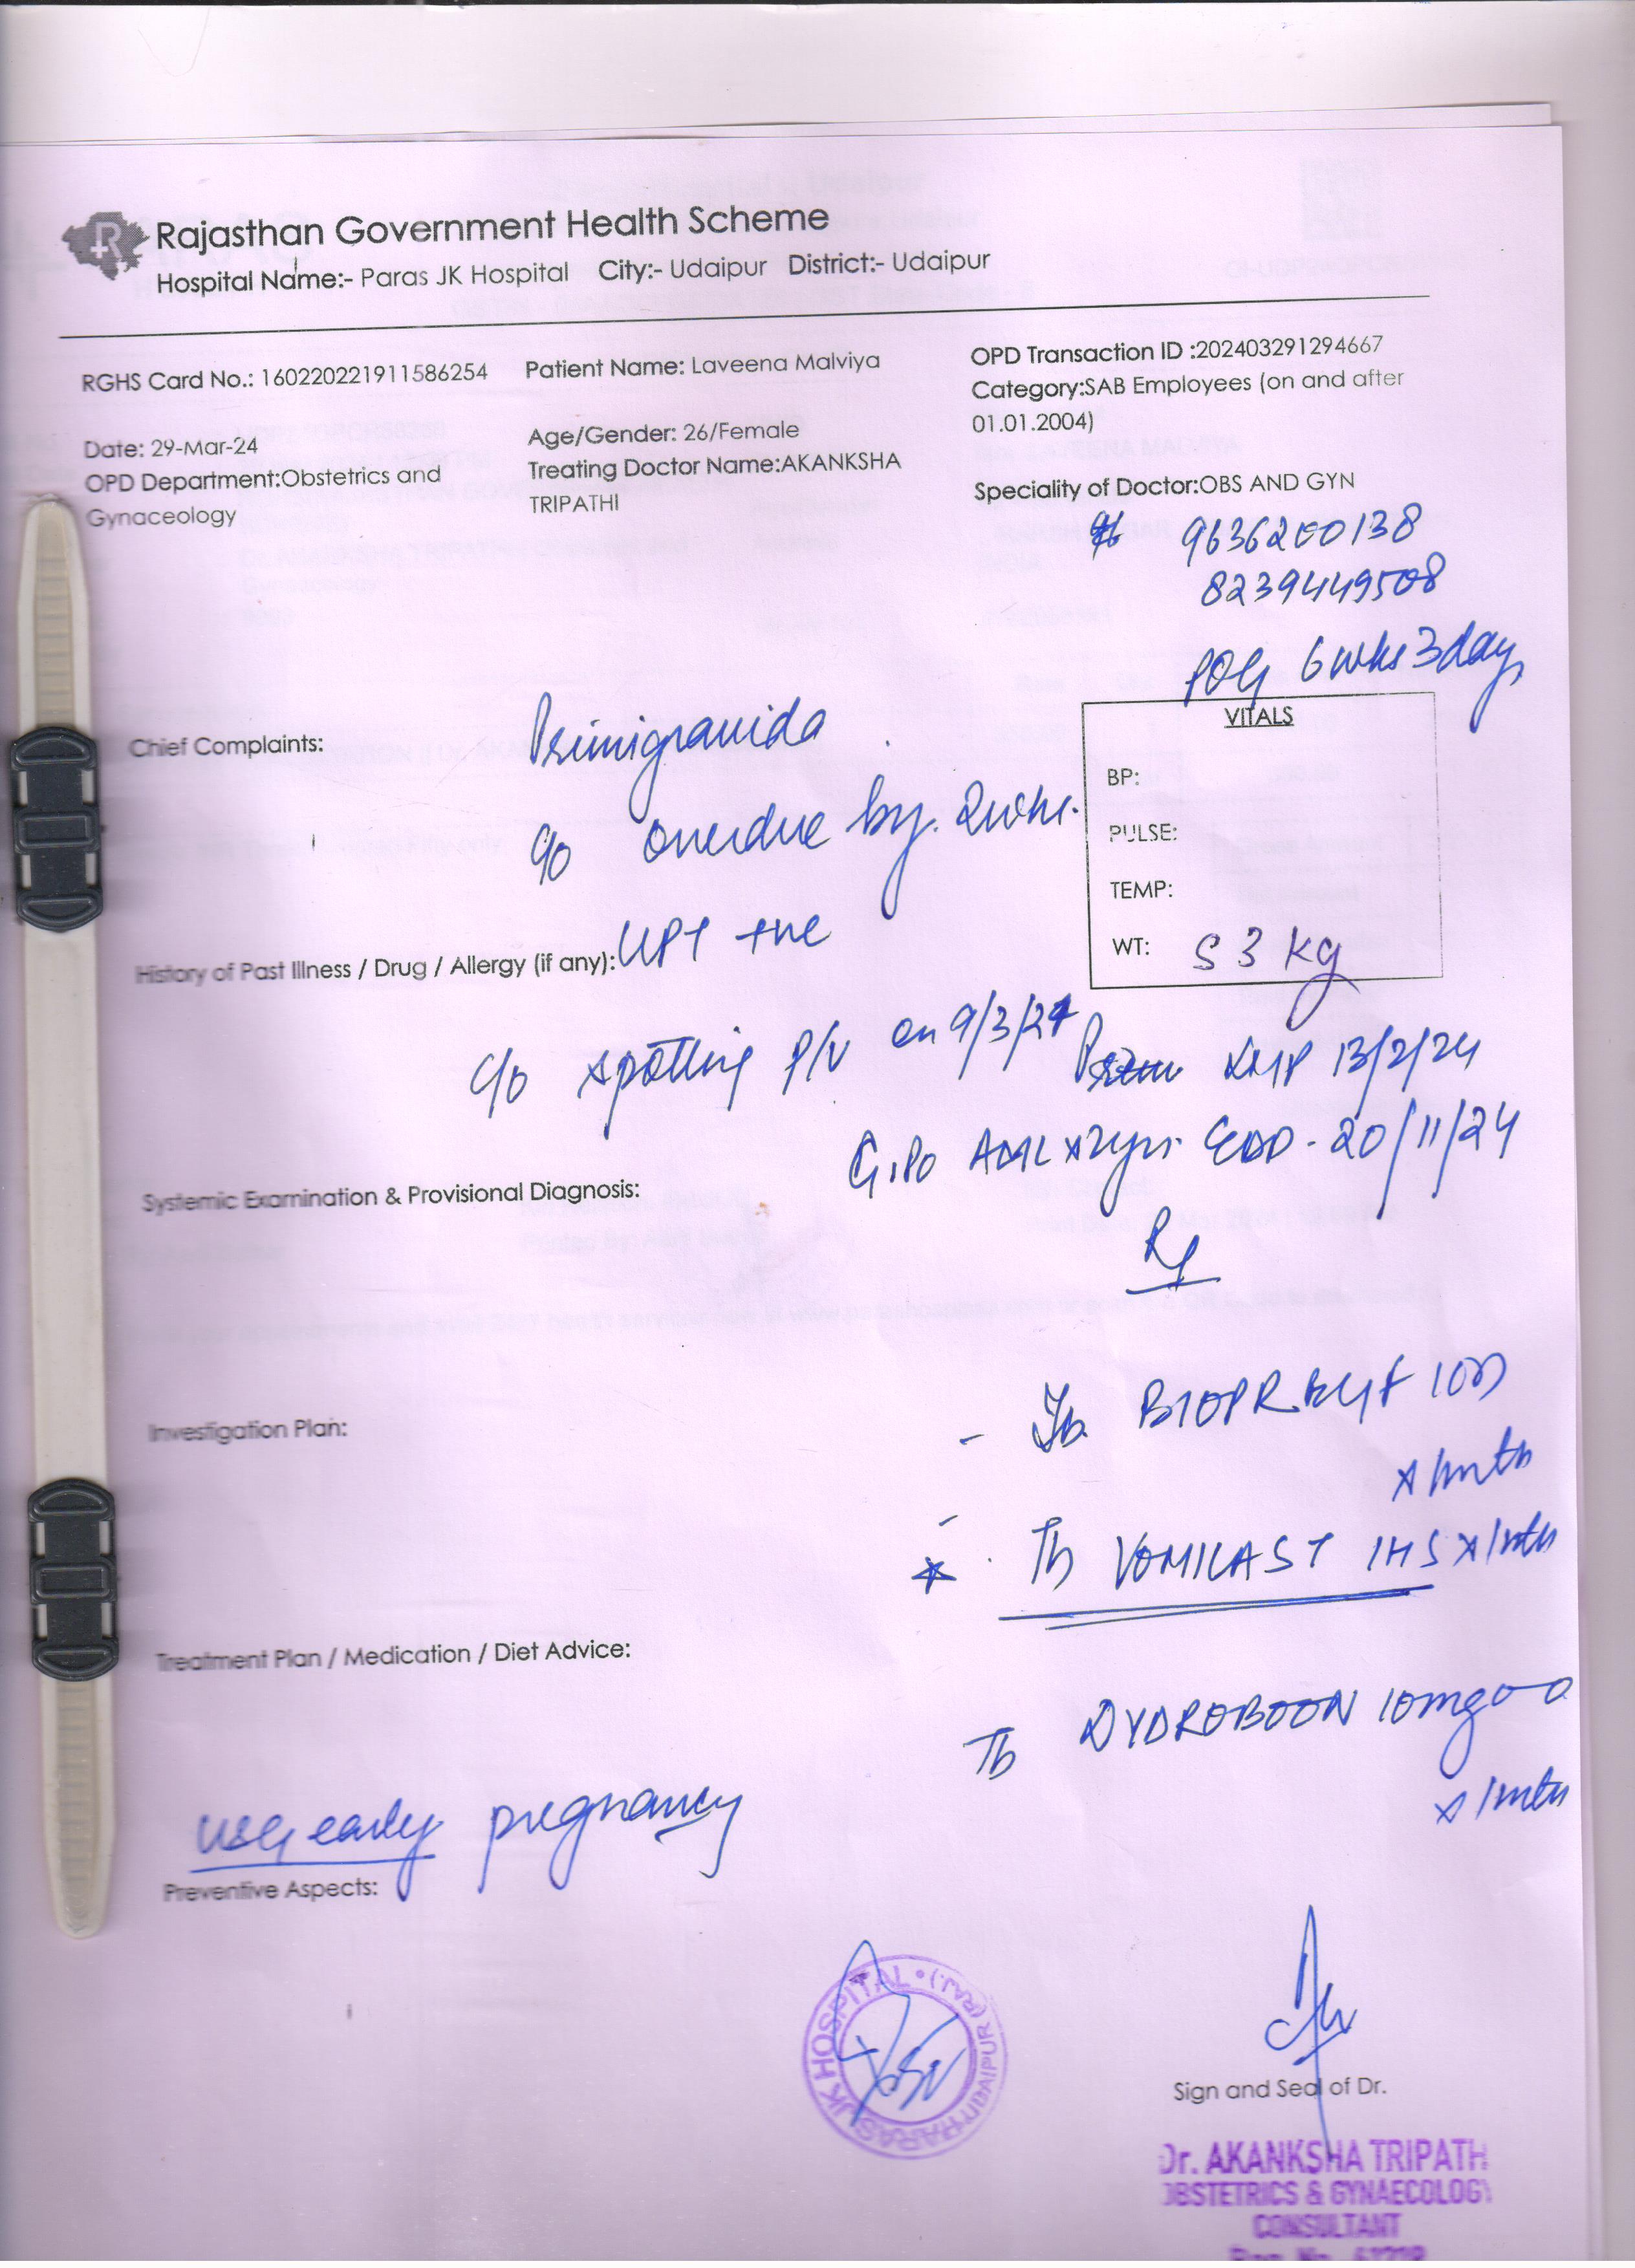 Rajasthan Government Health Scheme
Hospital Name:- Paras JK Hospital City:- Udaipur District:- Udaipur
RGHS Card No.: 160220221911586254 Patient Name: Laveena Malviya OPD Transaction ID :202403291294667
Category:SAB Employees (on and after
01.01.2004)
Date: 29-Mar-24 Age/Gender: 26/Female
OPD Department:Obstetrics and Treating Doctor Name:AKANKSHA Speciality of Doctor:OBS AND GYN
Gynaceology TRIPATHI
9636200138
8239449508
POG 6wks 3days
Chief Complaints: Primigravida
VITALS
BP:
c/o overdue by 2wks.
PULSE:
TEMP:
History of Past Illness / Drug / Allergy (if any): UPT +ve
WT: 53 kg
c/o spotting P/V on 9/3/24 LMP 13/2/24
G1P0 x2yrs. EDD - 20/11/24
Systemic Examination & Provisional Diagnosis:
Rx
Investigation Plan:
- Tb 1OD
x1mth
- Tb VOMIKAST 1HS x1mth
Treatment Plan / Medication / Diet Advice:
Tb DYDROBOON 10mg
x1mth
USG early pregnancy
Preventive Aspects:
PARAS JK HOSPITAL • UDAIPUR (RAJ.)
Sign and Seal of Dr.
Dr. AKANKSHA TRIPATH
OBSTETRICS & GYNAECOLOGY
CONSULTANT